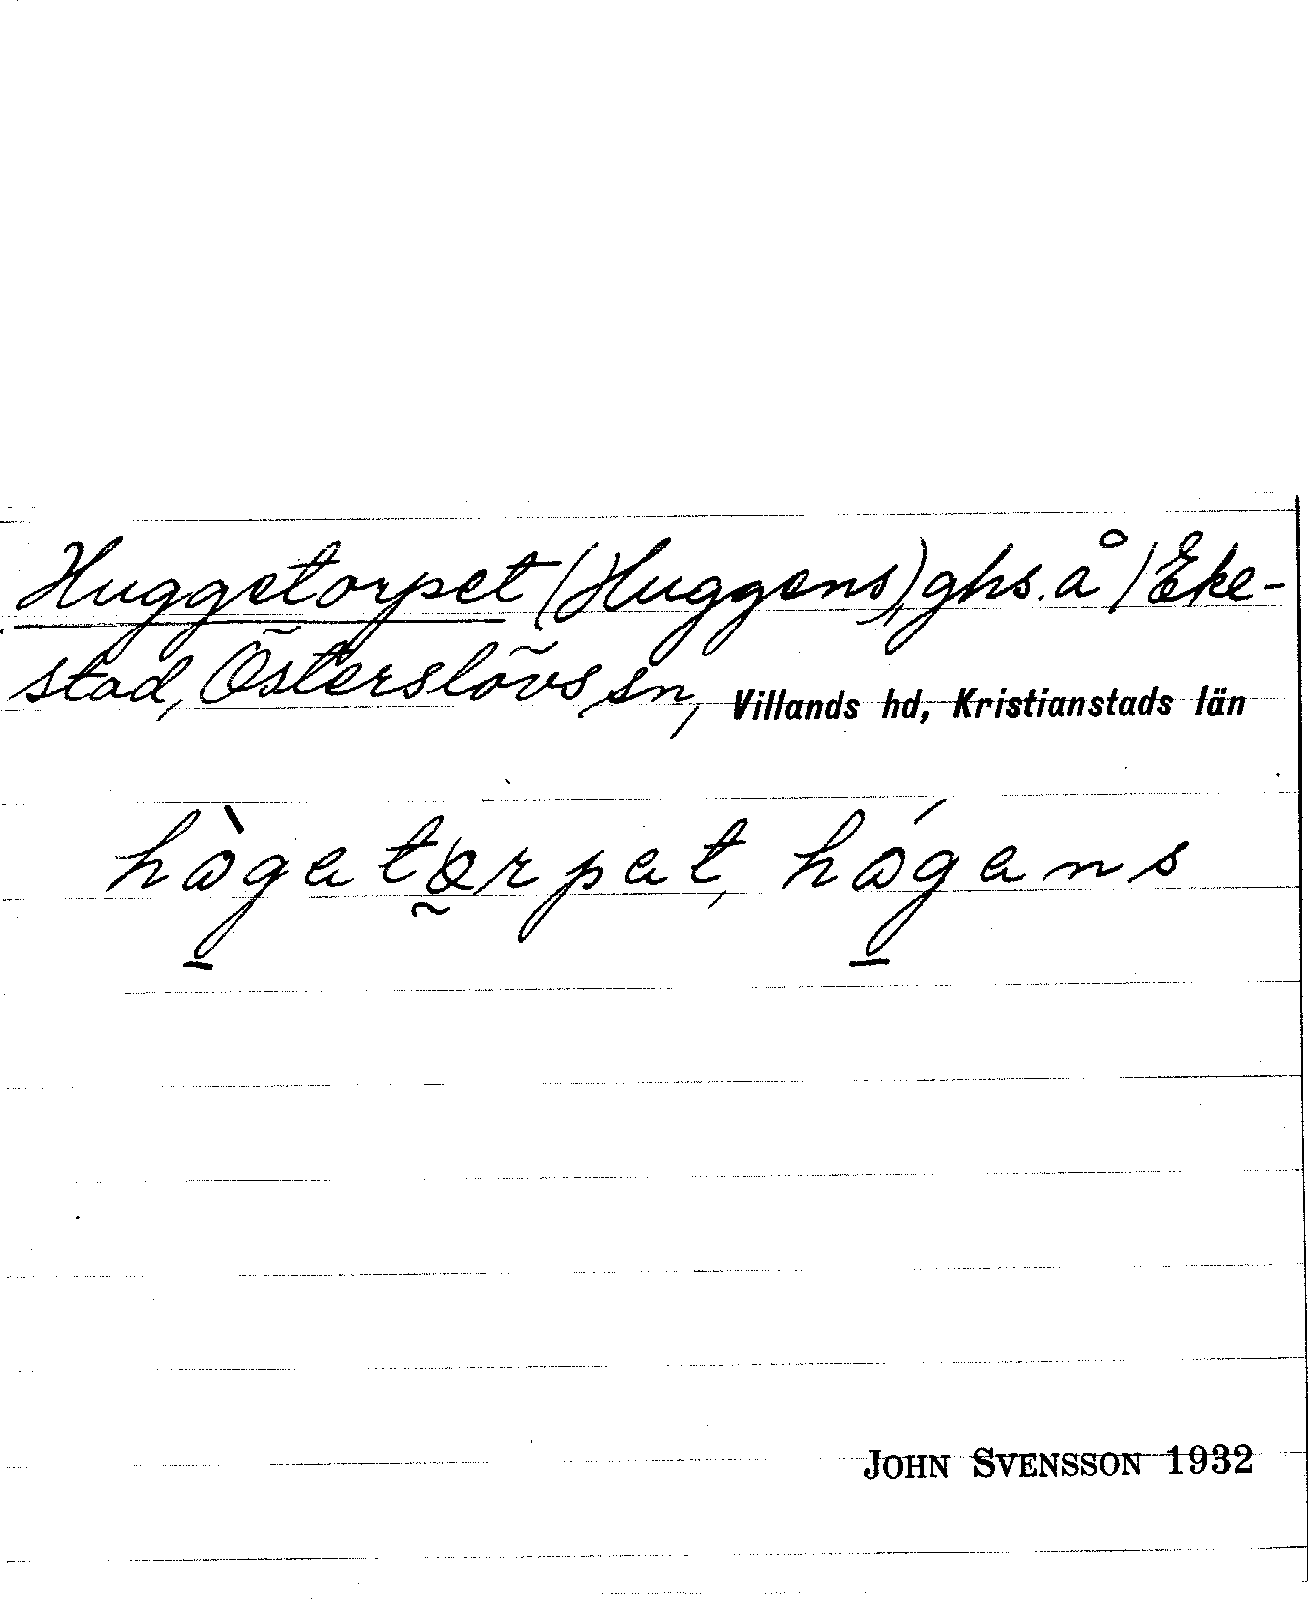 Huggetorpet (Huggens), ghs. å / Eke-
stad, Österslövs sn, Villands hd, Kristianstads län
hògetorpet, hógens
JOHN SVENSSON 1932